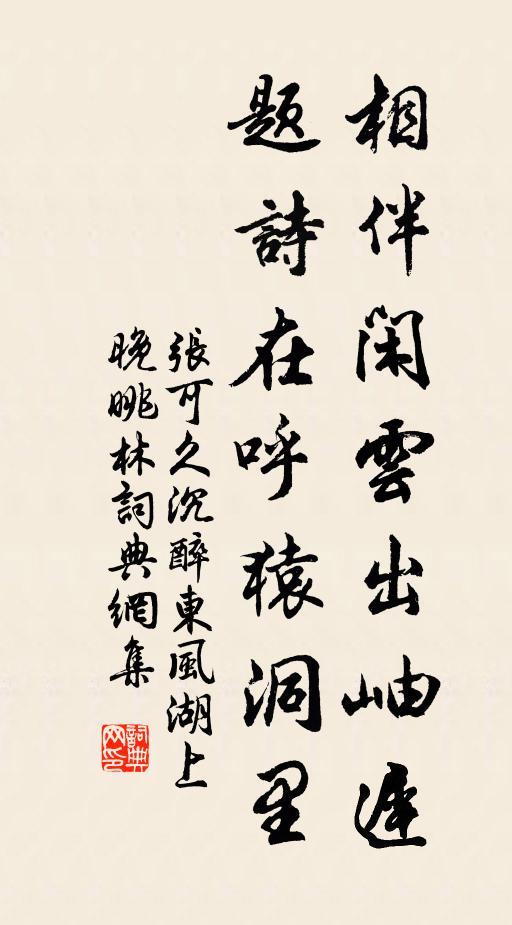 相伴闲雲出岫遲
題詩在呼猿洞里
張可久沉醉東風湖上
晚眺林詞典網集
詞典网印